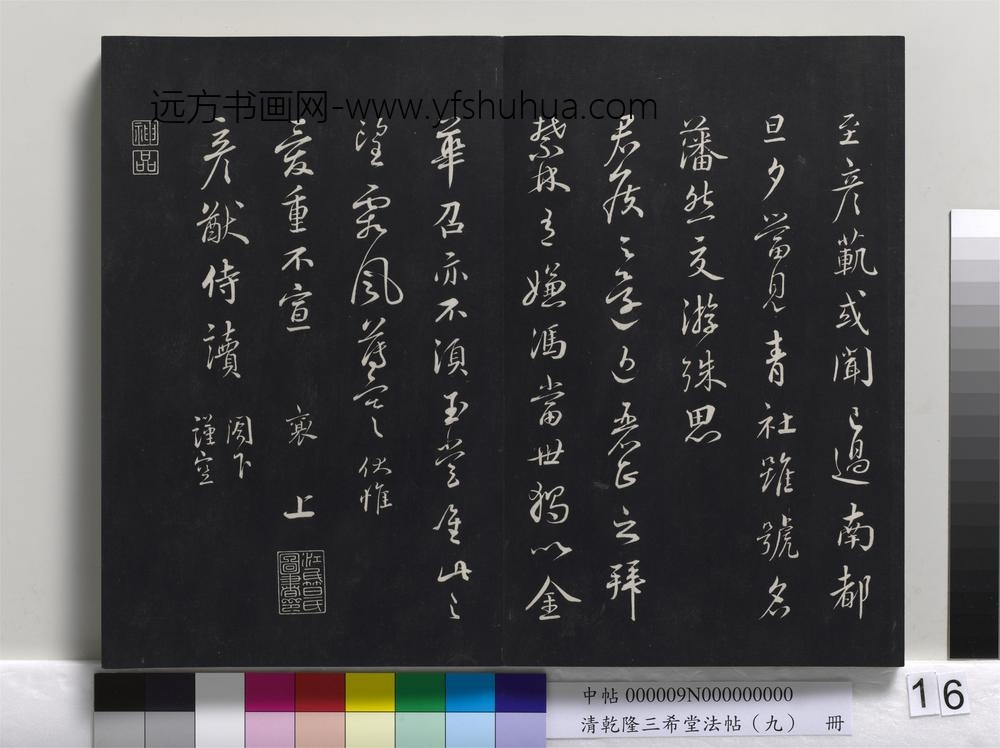 远方书画网-www.yfshuhua.com
至彥範或聞已過南都
旦夕當見青社雖號名
藩然交遊殊思
君侯之還近麗正之拜
禁林有嫌馮當世獨以金
華召亦不須玉堂唯此之
望霜風薄寒伏惟
愛重不宣 襄 上
彥猷侍讀 閣下
謹空
神品
中帖 000009N000000000
清乾隆三希堂法帖（九） 冊
16